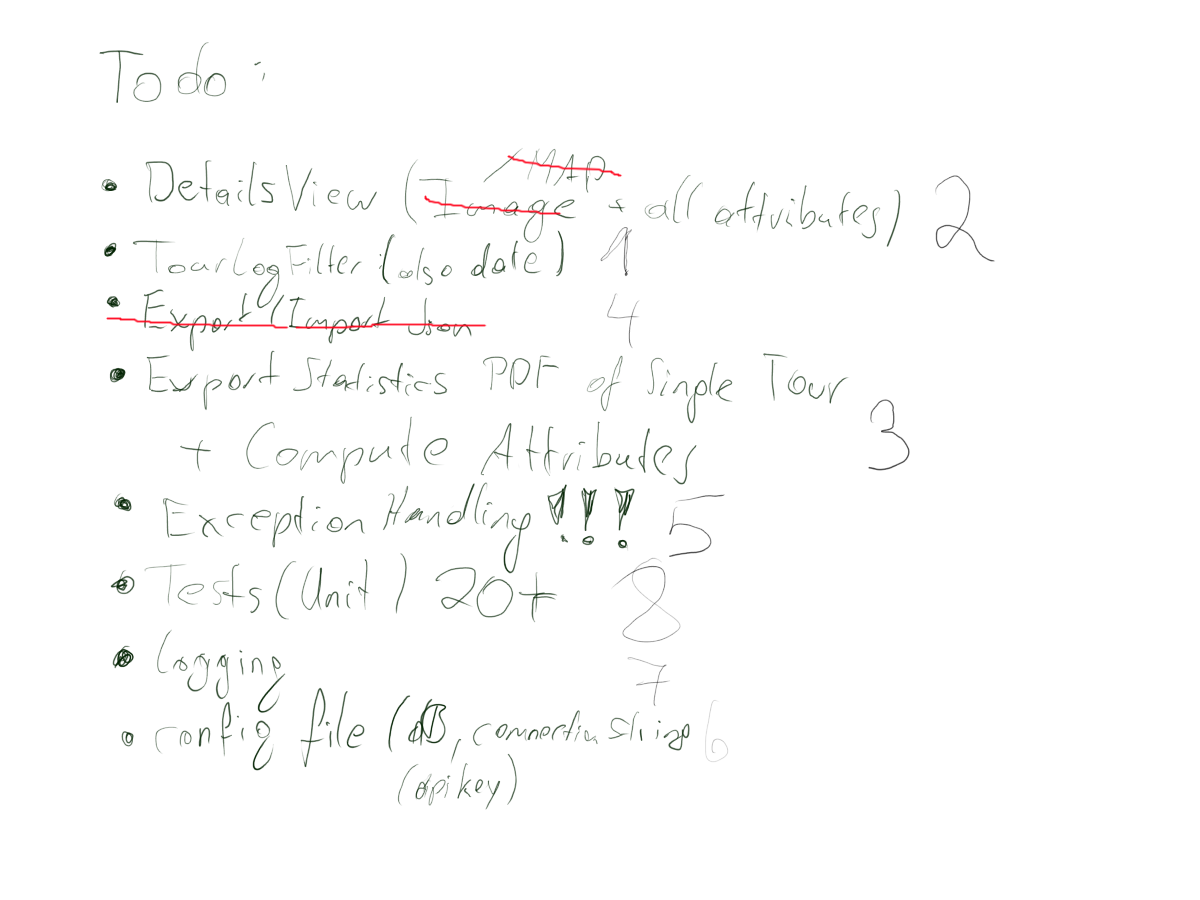 Todo :
/MAP
• DetailsView (Image + all attributes) 2
• TourLogFilter (also date) 1
• Export/Import Json 4
• Export Statistics PDF of Single Tour
+ Compute Attributes 3
• Exception Handling !!! 5
• Tests (Unit) 20+ 8
• Logging 7
• config file (dB, connection string 6
(api key)